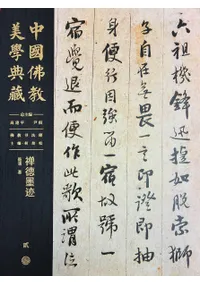 六祖機鋒迅捷如脫索獅
子自在無畏一言即證即抽
身便行因強留一宿故號一
宿覺退而便作此歌所謂
中國佛教
美學典藏
禪德墨迹